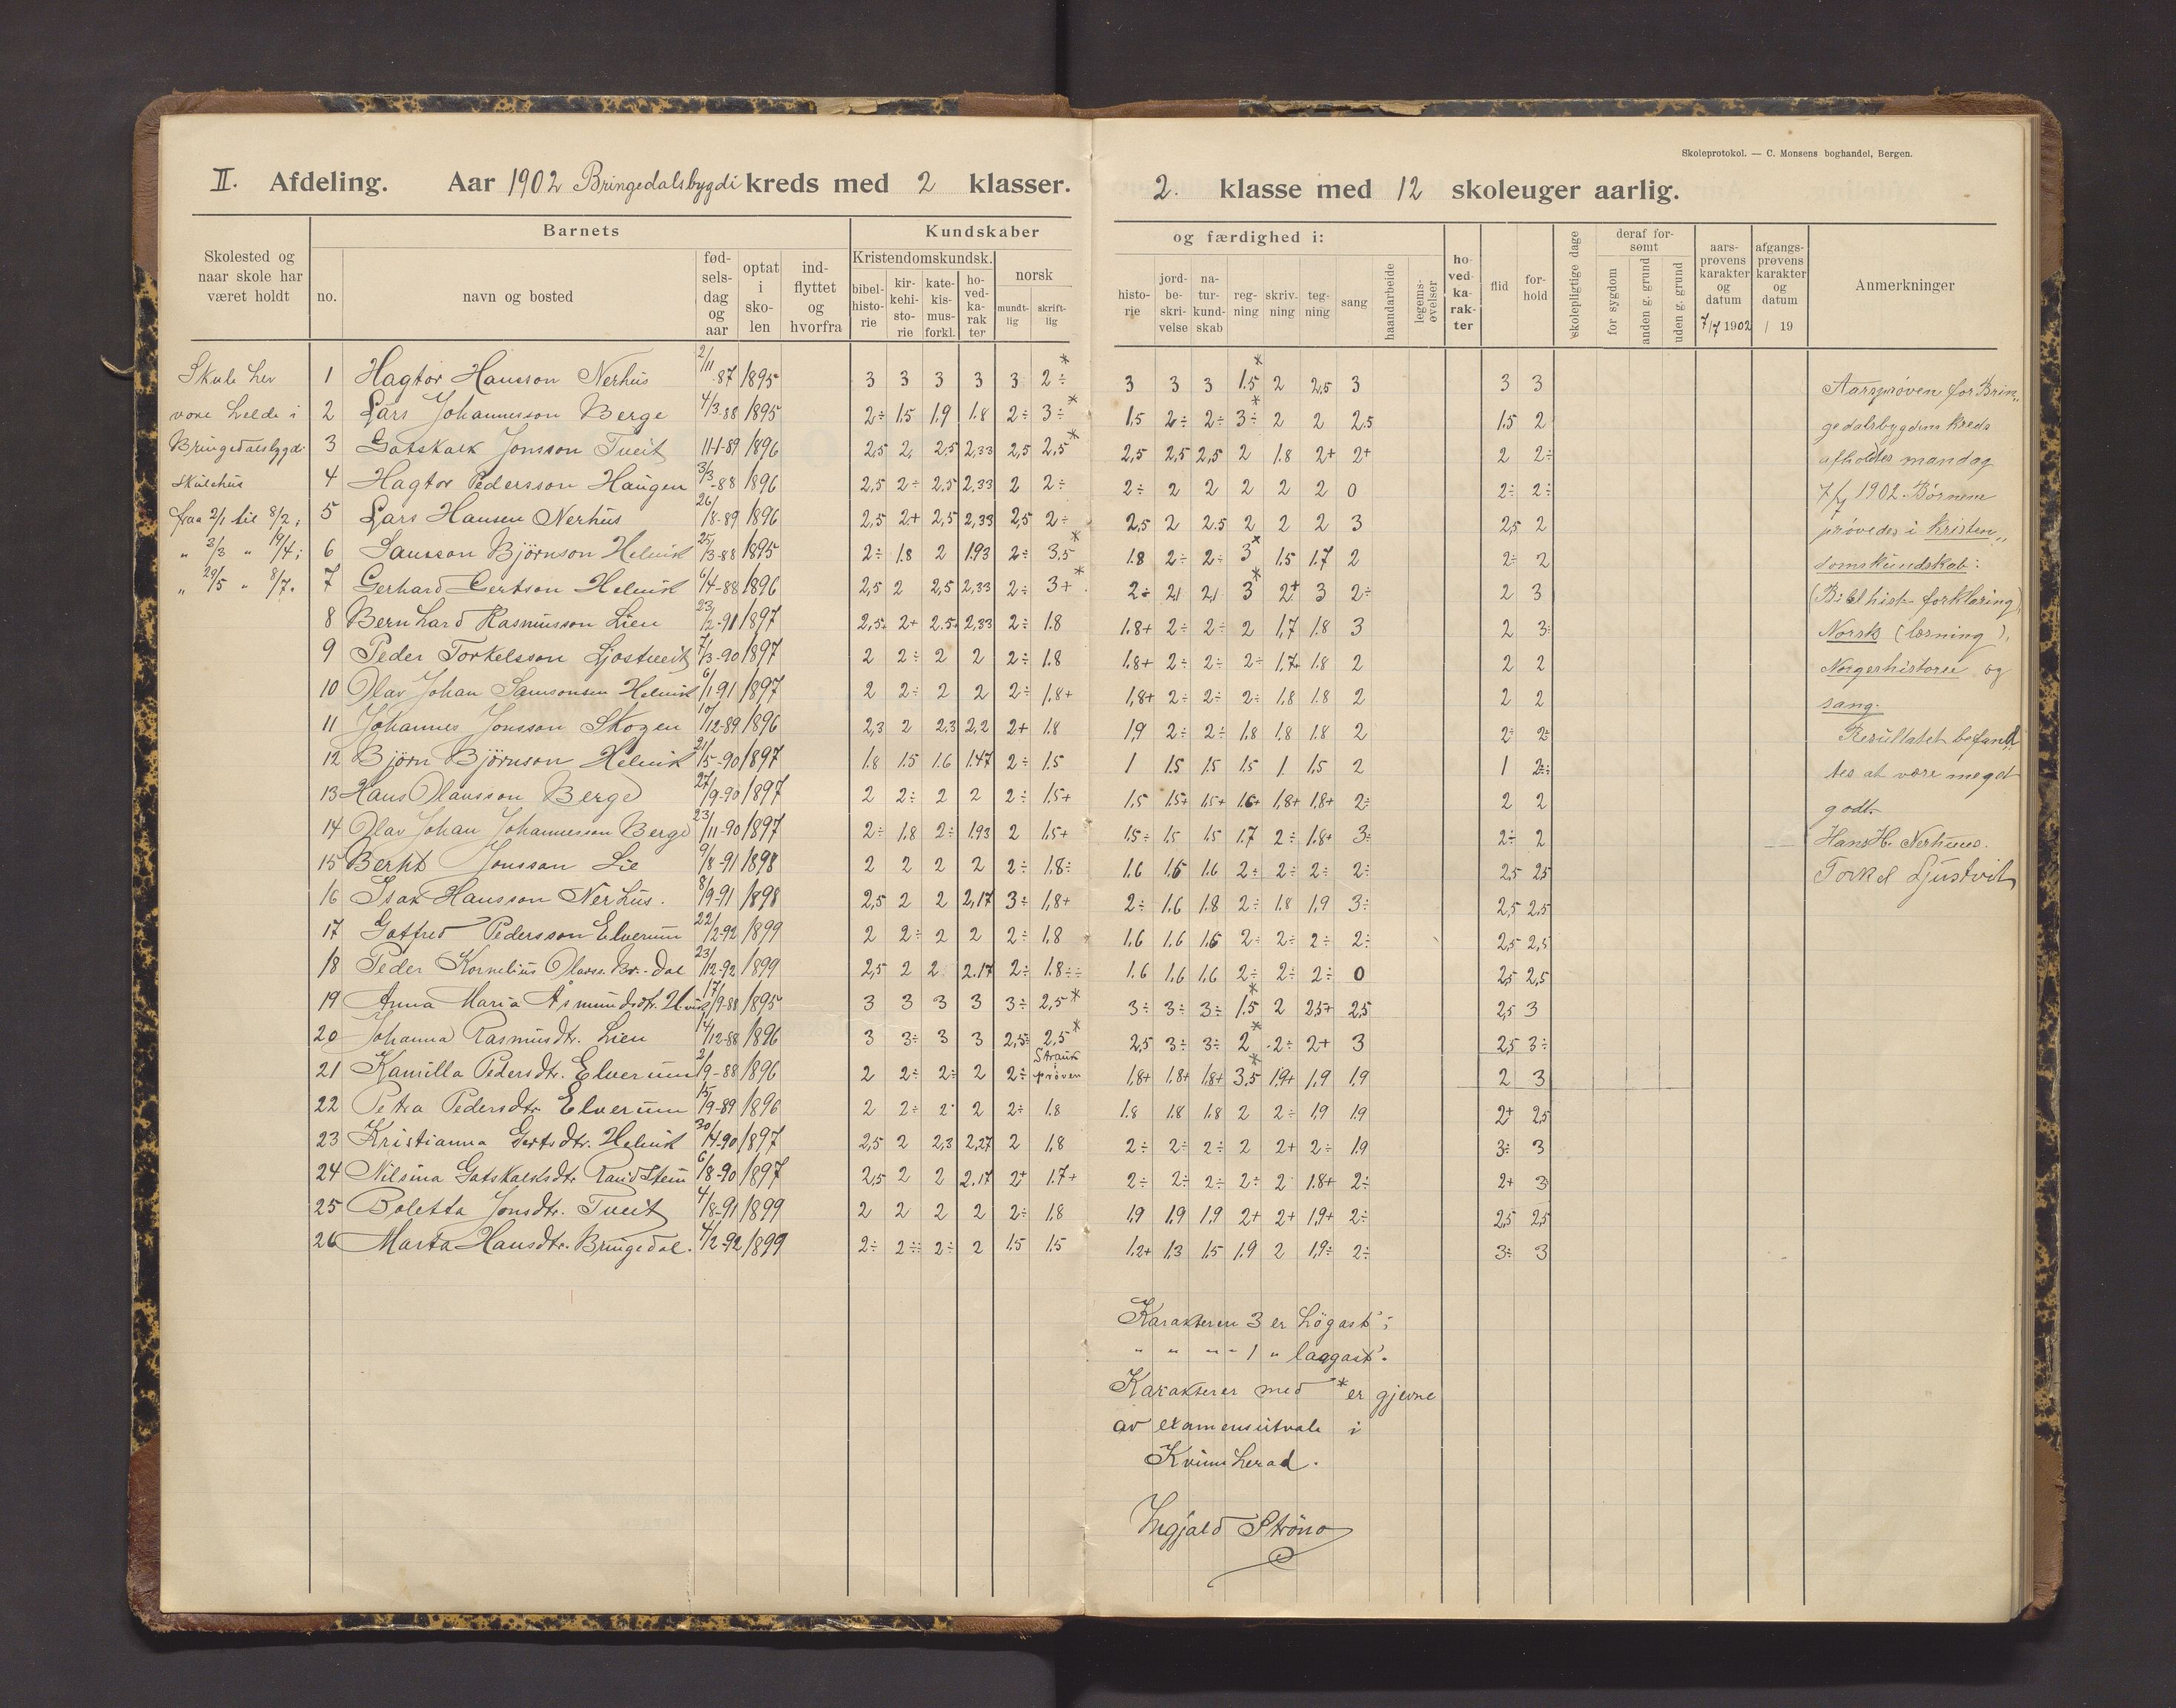 Skoleprotokol. — C. Monsens boghandel, Bergen.
II. Afdeling. Aar 1902 Bringedalsbygdi kreds med 2 klasser. 2. klasse med 12 skoleuger aarlig.
Barnets Kundskaber og færdighed i:
Skolested og naar skole har været holdt
no.
navn og bosted
fød-sels-dag og aar
optat i sko-len
ind-flyttet og hvorfra
Kristendomskundsk.
bibel-histo-rie
kir-kehi-sto-rie
kate-kis-mus-forkl.
ho-ved-ka-rak ter
norsk
mundt-lig
skrift-lig
histo-rie
jord-be-skri-velse
na-tur-kund-skab
reg-ning
skriv-ning
teg-ning
sang
haandarbeide
legems-øvelser
ho-ved-ka-rak-ter
flid
for-hold
skolepligtige dage
deraf for-sømt
for sygdom
anden g. grund
uden g. grund
aars-prøvens karakter og datum 7/7 1902
afgangs-prøvens karakter og datum / 19
Anmerkninger
Skule hev
vore helde i
Bringedalsbygdi
skulehus
fraa 2/1 til 8/2;
" 3/3 " 19/4;
" 29/5 " 8/7.
1 Hagtor Hansson Nerhus 2/11 87 1895 3 3 3 3 3 2÷* 3 3 3 1.5* 2 2,5 3 3 3
2 Lars Johannesson Berge 4/3-88 1895 2÷ 1.5 1.9 1.8 2÷ 3÷* 1.5 2÷ 2÷ 3÷* 2 2 2.5 1.5 2
3 Gotskalk Jonsson Tveit 11-1-89 1896 2,5 2, 2,5 2,33 2,5 2,5* 2,5 2,5 2,5 2 1.8 2+ 2+ 2 2÷
4 Hagtor Pedersson Haugen 3/3-88 1896 2,5 2÷ 2,5 2,33 2 2÷ 2÷ 2 2 2 2 2 0 2÷ 2÷
5 Lars Hansen Nerhus 26/8-89 1896 2,5 2+ 2,5 2,33 2,5 2÷ 2,5 2 2.5 2 2 2 3 2,5 2
6 Samson Björnson Helvik 25/3-88 1895 2÷ 1.8 2 1.93 2÷ 3,5* 1.8 2÷ 2÷ 3* 1.5 1.7 2 2÷ 2
7 Gerhard Gertson Helvik 6/4-88 1896 2,5 2 2,5 2,33 2÷ 3+* 2÷ 2,1 2,1 3* 2+ 3 2÷ 2 3
8 Bernhard Rasmusson Lien 23/2-91 1897 2,5+ 2+ 2.5+ 2,33 2÷ 1.8 1.8+ 2÷ 2÷ 2 1,7 1.8 3 2 3÷
9 Peder Torkelsson Ljostveit 7/3-90 1897 2 2÷ 2 2 2÷ 1.8 1.8+ 2÷ 2÷ 2÷ 1.7+ 1.8 2 2 2
10 Olav Johan Samsonsen Helvik 6/1-91 1897 2 2÷ 2 2 2÷ 1,8+ 1,8+ 2÷ 2÷ 2÷ 1.8 1.8 2 2 2
11 Johannes Jonsson Skogen 10/12-89 1896 2,3 2 2.3 2,2 2+ 1.8 1.9 2÷ 2÷ 1.8 1.8 1.8 2 2÷ 2÷
12 Björn Björnson Helvik 21/5-90 1897 1.8 1.5 1.6 1.47 2÷ 1.5 1 1.5 1.5 1.5 1 1.5 2 1 2÷
13 Hans Olausson Berge 27/9-90 1897 2 2÷ 2 2 2÷ 1.5+ 1.5 1.5+ 1.5+ 1.6+ 1,8+ 1,8+ 2÷ 2 2
14 Olav Johan Johannesson Berge 23/11-90 1897 2÷ 1.8 2÷ 1.93 2 1.5+ 1.5÷ 1.5 1.5 1.7 2÷ 1.8+ 3÷ 2÷ 2
15 Bernt Jonsson Lie 9/8-91 1898 2 2 2 2 2÷ 1.8÷ 1.6 1.6 1.6 2÷ 2÷ 2÷ 2÷ 2,5 2,5
16 Isak Hansson Nerhus. 8/9-91 1898 2,5 2 2 2,17 3÷ 1,8+ 2÷ 1.6 1.8 2÷ 1.8 1.9 3÷ 2,5 2,5
17 Gotfred Pedersson Elverum 22/2-92 1899 2 2÷ 2 2 2÷ 1.8 1.6 1.6 1.6 2÷ 2÷ 2÷ 2÷ 2,5 2,5
18 Peder Kornelius Olavss. Br.-dal 23/12-92 1899 2,5 2 2 2.17 2÷ 1.8÷÷ 1.6 1.6 1.6 2÷ 2÷ 2÷ 0 2,5 2,5
19 Anna Maria Åsmundsdt. H.vik 17/9-88 1895 3 3 3 3 3÷ 2,5* 3÷ 3÷ 3÷ 1.5* 2 2,5+ 2,5 2,5 3
20 Johanna Rasmusdtr. Lien 14/12-88 1896 3 3÷ 3 3 2,5÷ 2,5* 2,5 3÷ 3÷ 2* 2÷ 2+ 3 2,5 3÷
21 Kamilla Pedersdtr. Elverum 2/9-88 1896 2 2÷ 2÷ 2 2÷ Strauk prøven 1,8+ 1.8+ 1.8+ 3,5* 1.9+ 1.9 1.9 2 3
22 Petra Pedersdtr. Elverum 15/9-89 1896 2 2÷ 2 2 2÷ 1.8 1.8 1.8 1.8 2 2÷ 1.9 1.9 2+ 2,5
23 Kristianna Gertsdtr. Helvik 30/4-90 1897 2,5 2 2,3 2,27 2 1,8 2÷ 2÷ 2÷ 2 2+ 2÷ 1.9 3÷ 3
24 Nilsina Gotskalksdtr. Raudstein 6/8-90 1897 2,5 2 2 2.17 2+ 1.7+ 2÷ 2÷ 2÷ 2÷ 2 1.8+ 2÷ 2+ 3
25 Boletta Jonsdtr. Tveit 4/8-91 1899 2 2 2 2 2÷ 1.8 1.9 1.9 1.9 2+ 2+ 1,9+ 2÷ 2,5 2,5
26 Marta Hansdtr. Bringedal. 4/2-92 1899 2÷ 2÷ 2÷ 2 1.5 1.5 1.2+ 1.3 1.5 1.9 2 1.9÷ 2÷ 3÷ 3
Aarsprøven for Brin„
gedalsbygdens kreds
afholdtes mandag
7/7 1902. Börnene
prøvedes i kristen„
domskundskab:
(Bibelhist. forklaring),
Norsk (læsning),
Norgeshistorie og
sang.
Resultatet befand„
tes at være meget
godt.
Hans H. Nerhuus.
Torkel Ljustvit
Karakteren 3 er högast;
" " " 1 " laagast.
Karakterer med * er gjevne
av examensutvale i
Kvinnherad.
Ingjald Strönо